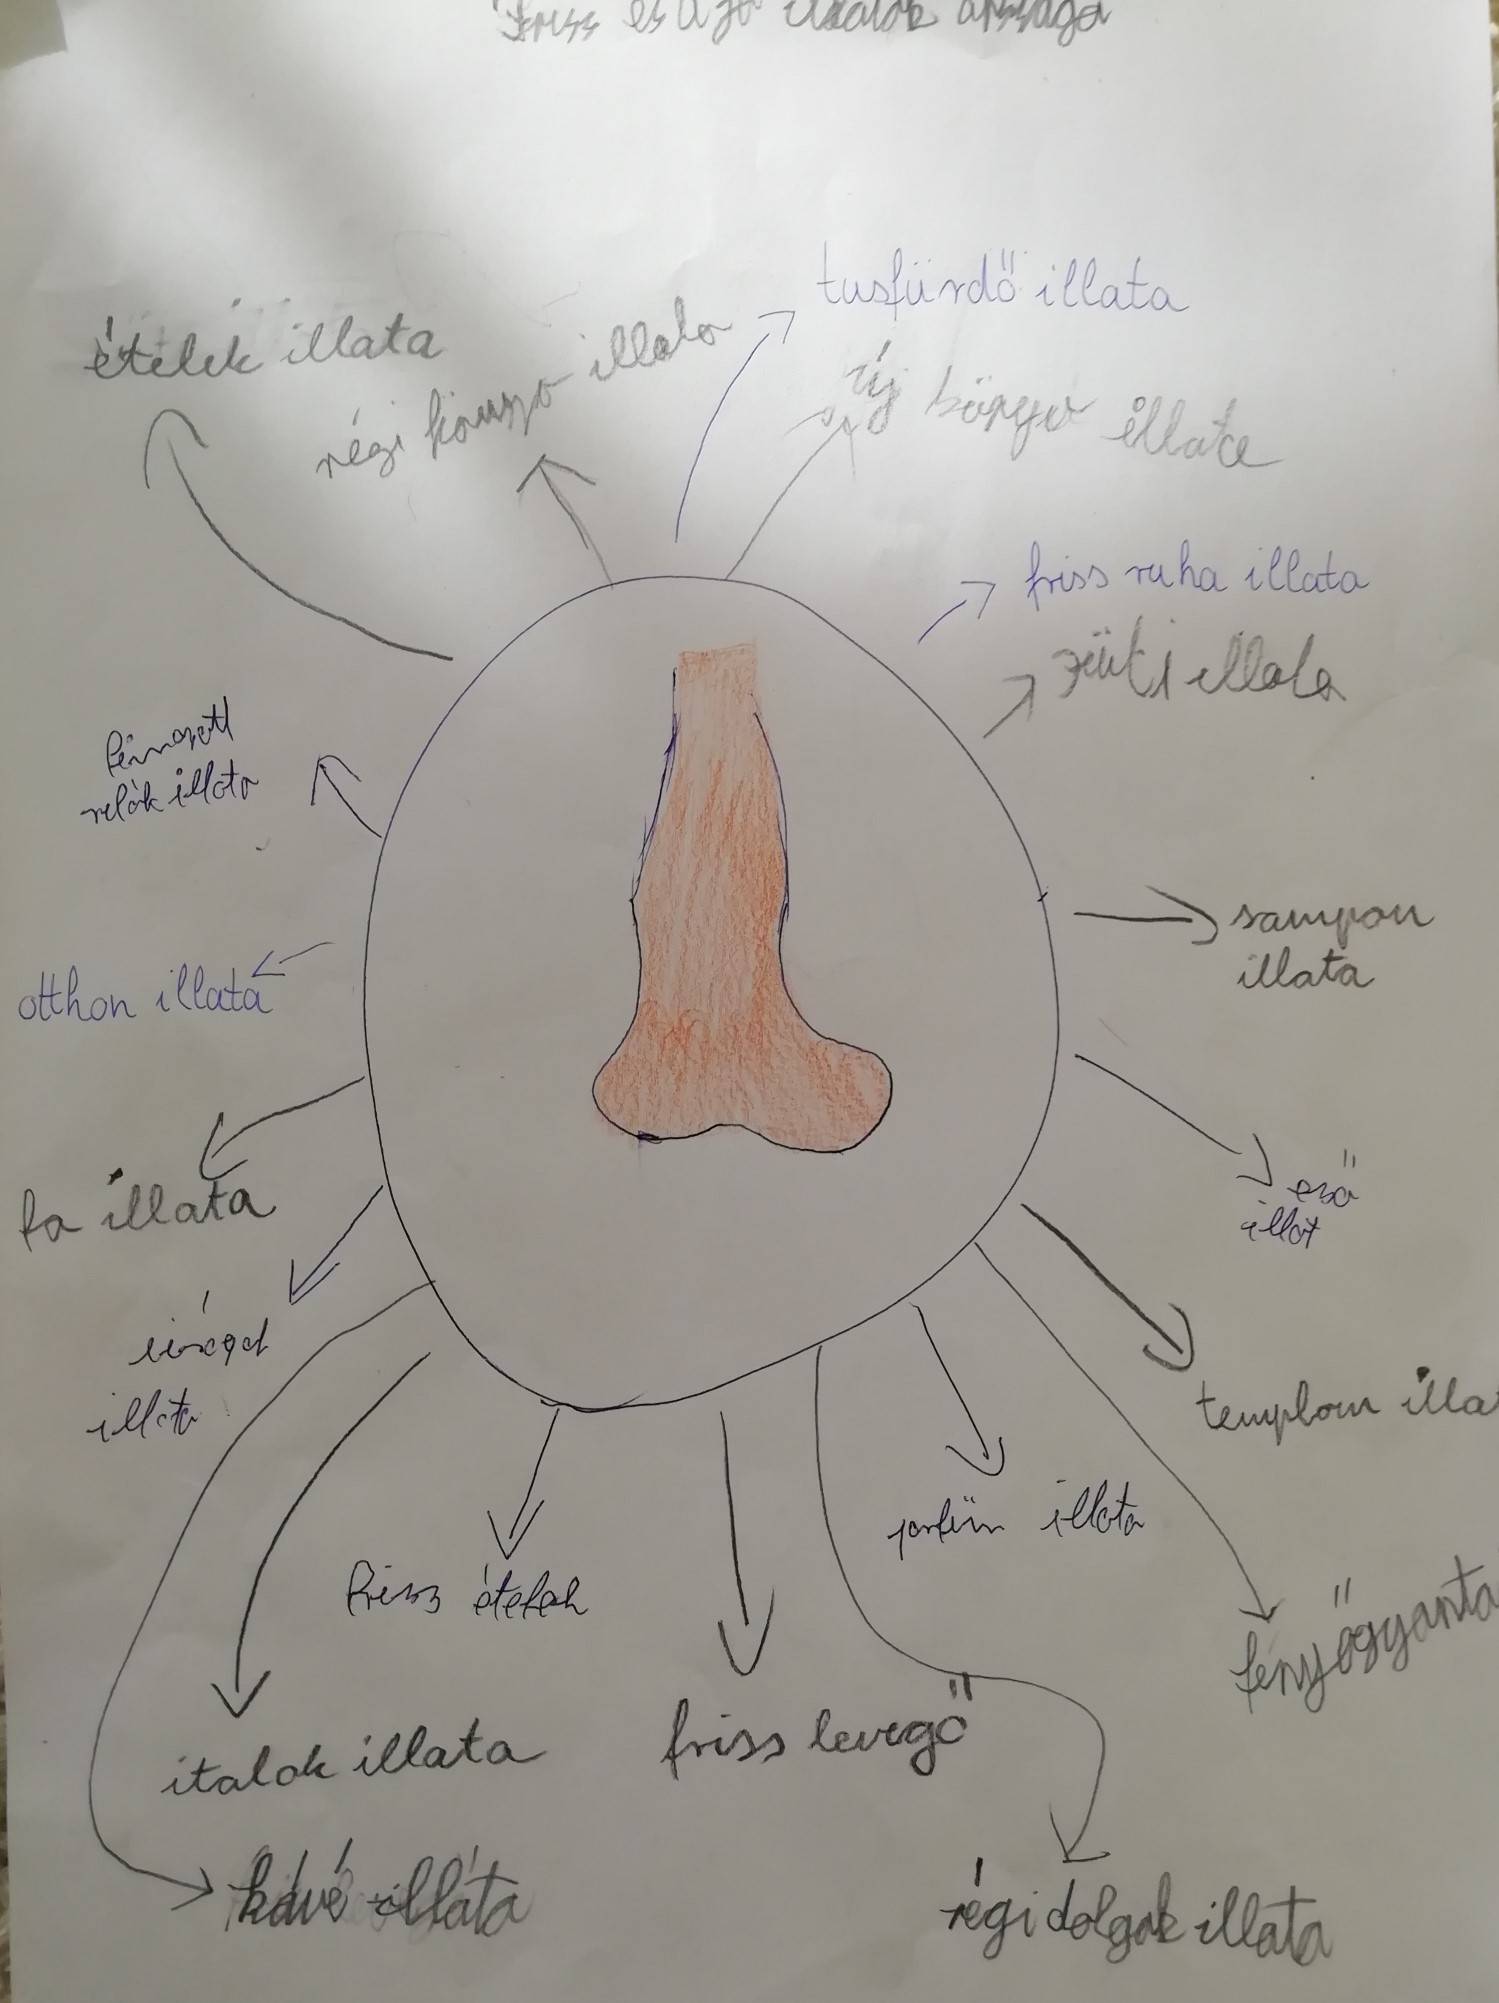 Friss és illatok országa
tusfürdő illata
ételek illata
régi könyv illata
új könyv illata
friss ruha illata
süti illata
relók illata
sampon
illata
otthon illata
eső
illat
fa illata
virágok
illata
templom illa
parfüm illata
friss ételek
fenyőgyanta
friss levegő
italok illata
kávé illata
régi dolgok illata